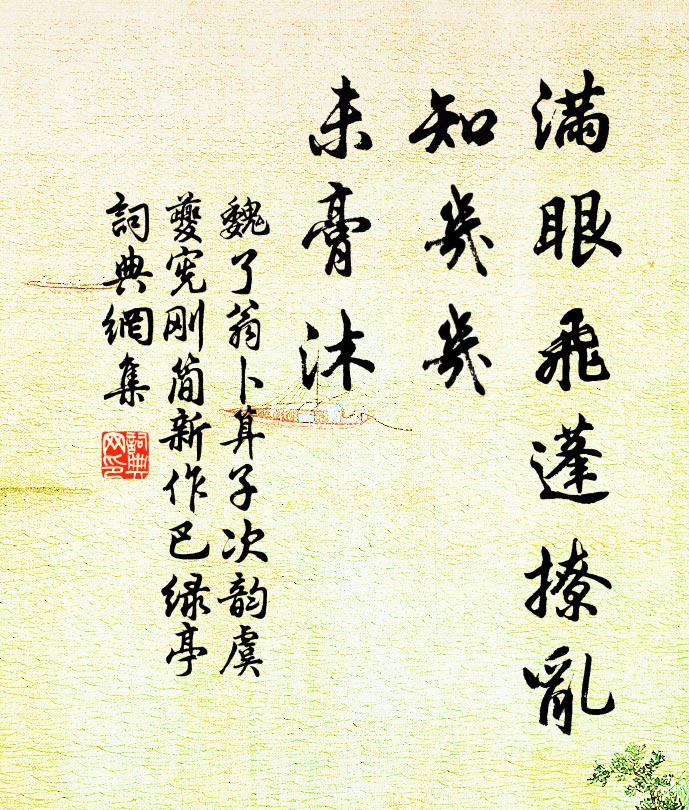 滿眼飛蓬撩亂
知幾幾
未膏沐
魏了翁卜算子次韵虞
夔宪刚简新作巴绿亭
詞典網集
詞典网印